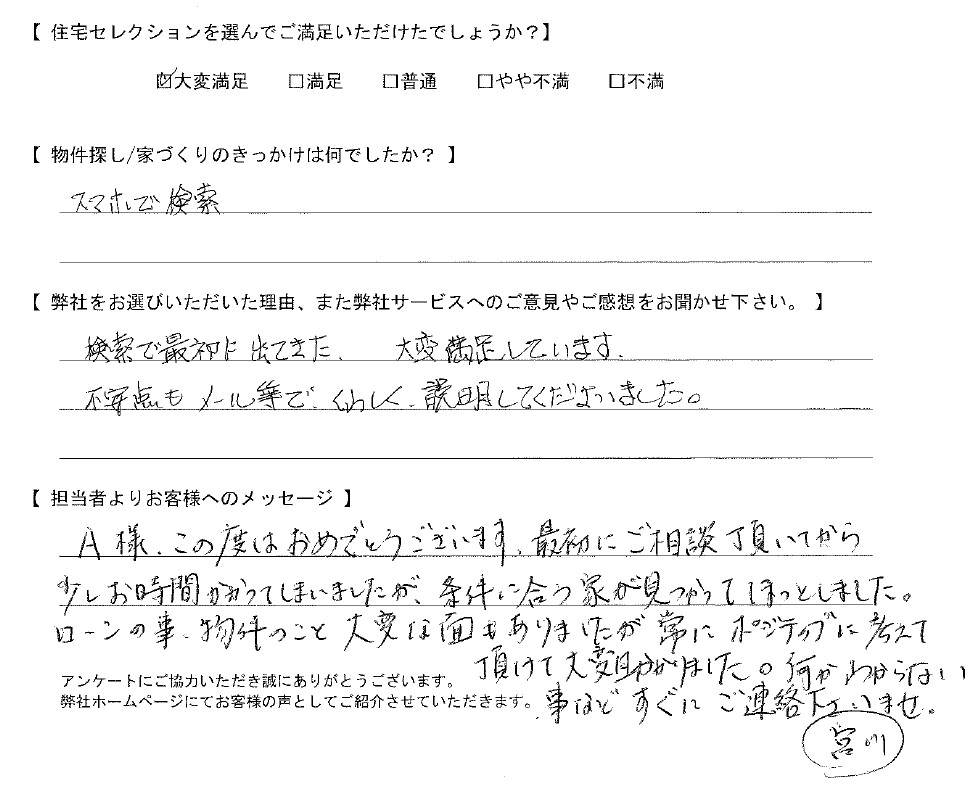 【 住宅セレクションを選んでご満足いただけたでしょうか？】
☑大変満足 □満足 □普通 □やや不満 □不満
【 物件探し/家づくりのきっかけは何でしたか？ 】
スマホで検索
【 弊社をお選びいただいた理由、また弊社サービスへのご意見やご感想をお聞かせ下さい。 】
検索で最初に出てきた、 大変満足しています。
不安点もメール等で、くわしく、説明してくださいました。
【 担当者よりお客様へのメッセージ 】
A様、この度はおめでとうございます、最初にご相談頂いてから
少しお時間かかってしまいましたが、条件に合う家が見つかってほっとしました。
ローンの事、物件のこと大変な面もありましたが常にポジティブに考えて
頂けて大変助かりました。何かわからない
アンケートにご協力いただき誠にありがとうございます。
弊社ホームページにてお客様の声としてご紹介させていただきます。
事などすぐにご連絡下さいませ。
宮川